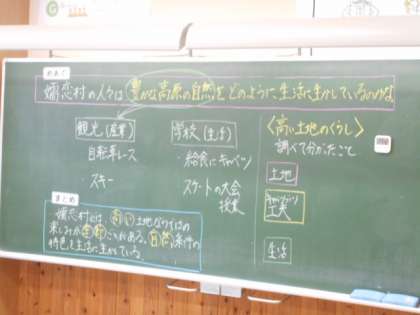 めあて
嬬恋村の人々は豊かな高原の自然をどのように生活に生かしているのかな
観光(産業)
自転車レース
・スキー
学校(生活)
・給食にキャベツ
スケートの大会
授業
<高い土地のくらし>
調べて分かったこと
土地
キャベツづくり
工夫
生活
まとめ
嬬恋村では、高い土地ならではの
楽しみや産業がある。自然条件の
特色を生活に生かしている。